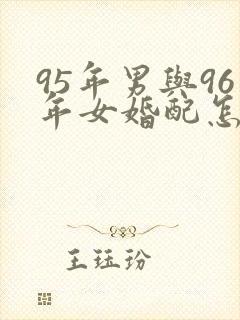 95年男與96
年女婚配怎
王珏玢